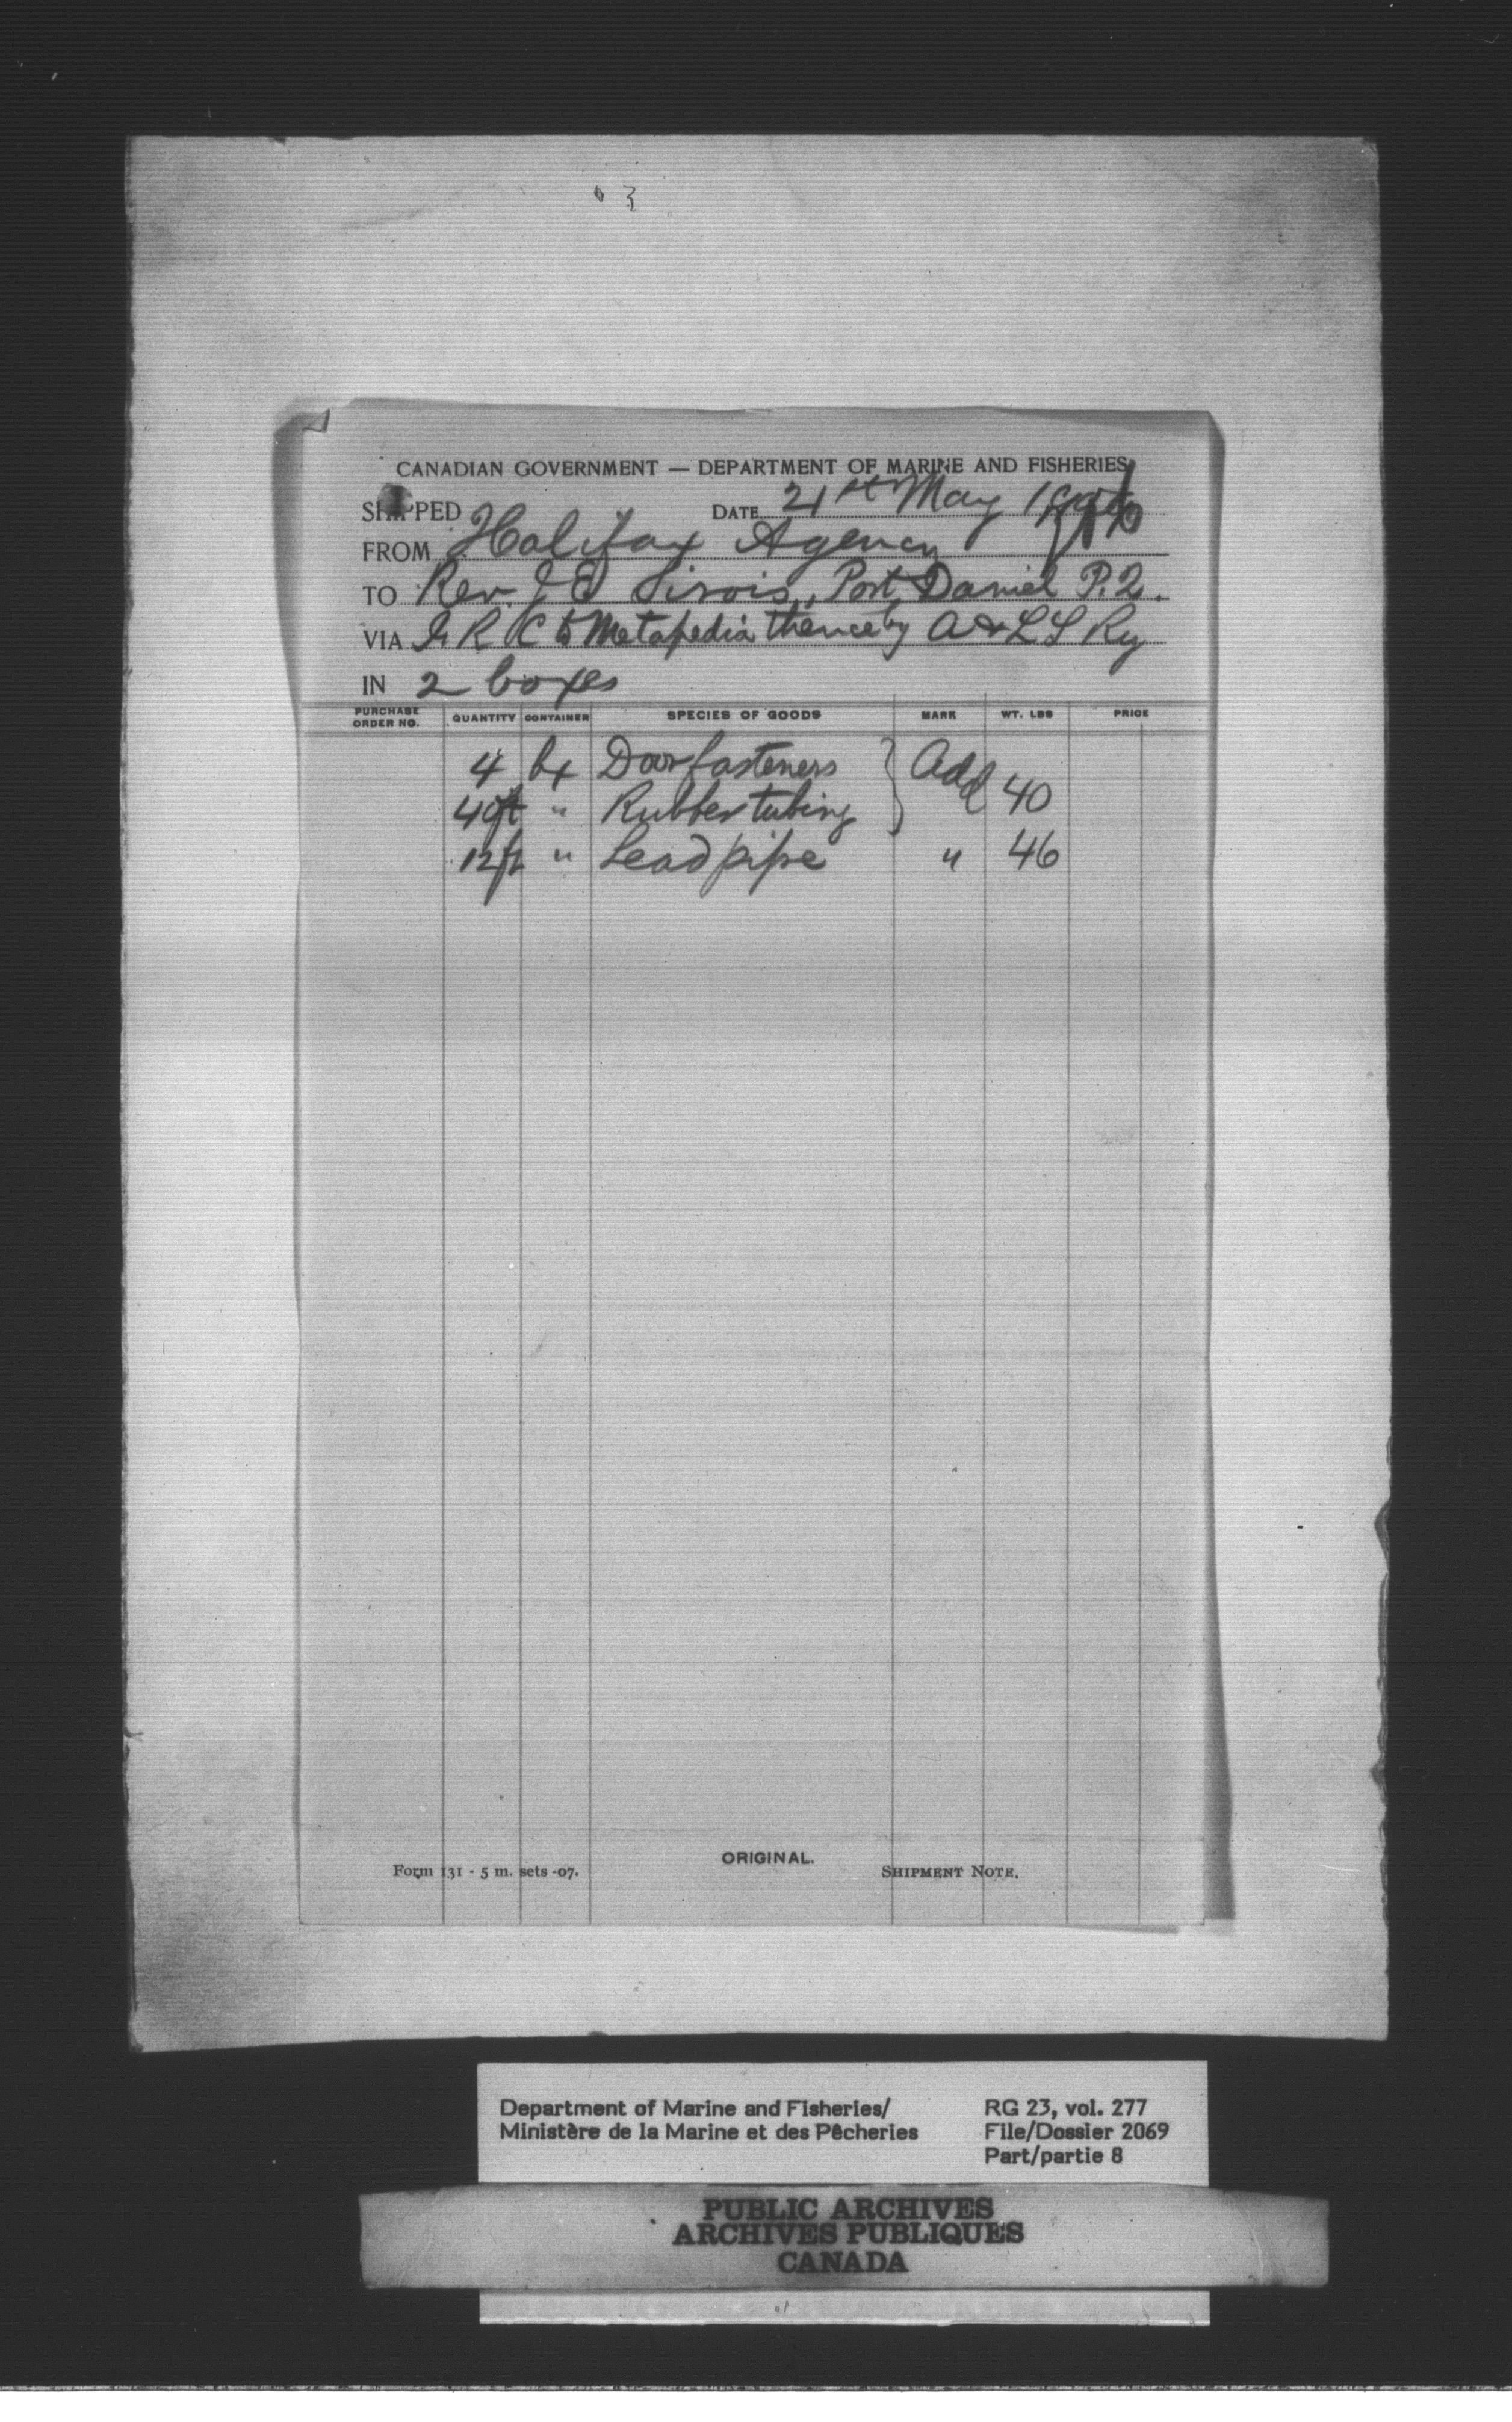 CANADIAN GOVERNMENT — DEPARTMENT OF MARINE AND FISHERIES
SHIPPED DATE 21st May
FROM Halifax Agency
TO Rev. J E Sirois, Port Daniel P.Q.
VIA I R C to Metapedia thence by A & L S Ry
IN 2 boxes
PURCHASE ORDER NO. QUANTITY CONTAINER SPECIES OF GOODS MARK WT. LBS PRICE
4 bx Door fasteners } Add
40ft " Rubber tubing 40
12ft " Lead pipe " 46
ORIGINAL.
Form 131 - 5 m. sets -07. SHIPMENT NOTE.
Department of Marine and Fisheries/ RG 23, vol. 277
Ministère de la Marine et des Pêcheries File/Dossier 2069
Part/partie 8
PUBLIC ARCHIVES
ARCHIVES PUBLIQUES
CANADA